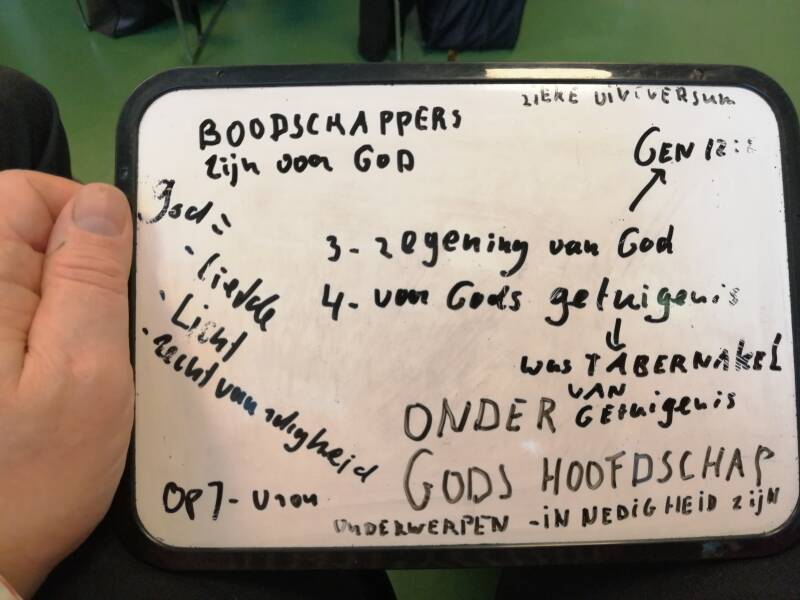 BOODSCHAPPERS
zijn voor GOD
GEN 12:
God =
3 - zegening van God
- Liefde
4 - van Gods getuigenis
- Licht
- recht van
was TABERNAKEL
VAN
ONDER GEtuigenis
GODS HOOFDSCHAP
ONDERWERPEN - iN NEDiGHEiD ZijN